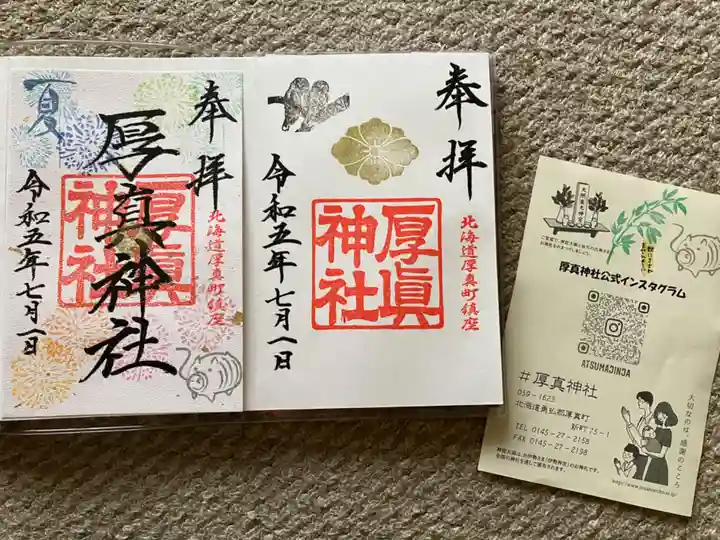 夏
奉拝
厚真神社
厚眞神社
北海道厚真町鎮座
令和五年七月一日
奉拝
厚眞神社
北海道厚真町鎮座
令和五年七月一日
厚真神社公式インスタグラム
ATSUMAJINJA
#厚真神社
059-1623
北海道勇払郡厚真町
新町75-1
TEL 0145-27-2158
FAX 0145-27-2198
大切なのは、感謝のこころ